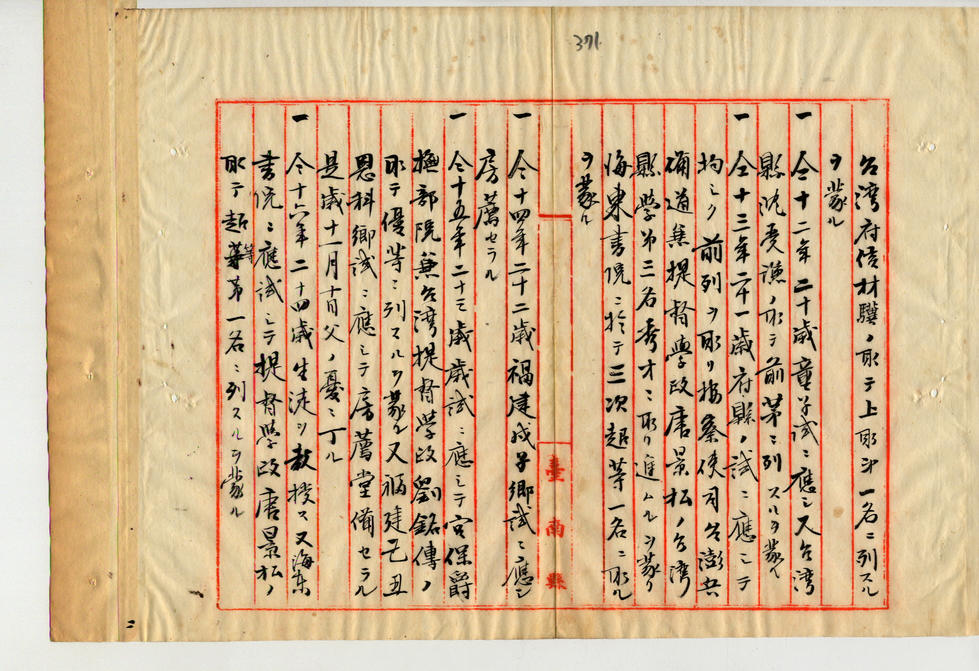 371
台湾府侯材驥ノ取テ上取第一名ニ列スル
ヲ蒙ル
一 仝十二年二十歳童子試ニ應シ又台湾
縣沈受謙ノ取テ前第ニ列スルヲ蒙ル
一 仝十三年二十一歳府縣ノ試ニ應シテ
均シク前列ヲ取リ按察使司台澎兵
備道兼提督學政唐景松ノ台湾
縣學第三名秀才ニ取リ進ムルヲ蒙リ
海東書院ニ於テ三次超等一名ニ取ル
ヲ蒙ル
一 仝十四年二十二歳福建戊子郷試ニ應シ
房薦セラル
一 仝十五年二十三歳歳試ニ應シテ宮保爵
撫部院兼台湾提督學政劉銘傳ノ
取テ優等ニ列スルヲ蒙ル又福建己丑
恩科郷試ニ應シテ房薦堂備セラル
是歳十一月十日父ノ憂ニ丁ル
一 仝十六年二十四歳生徒ヲ教授ス又海東
書院ニ應試シテ提督學政唐景松ノ
取テ超等第一名ニ列スルヲ蒙ル
臺南縣